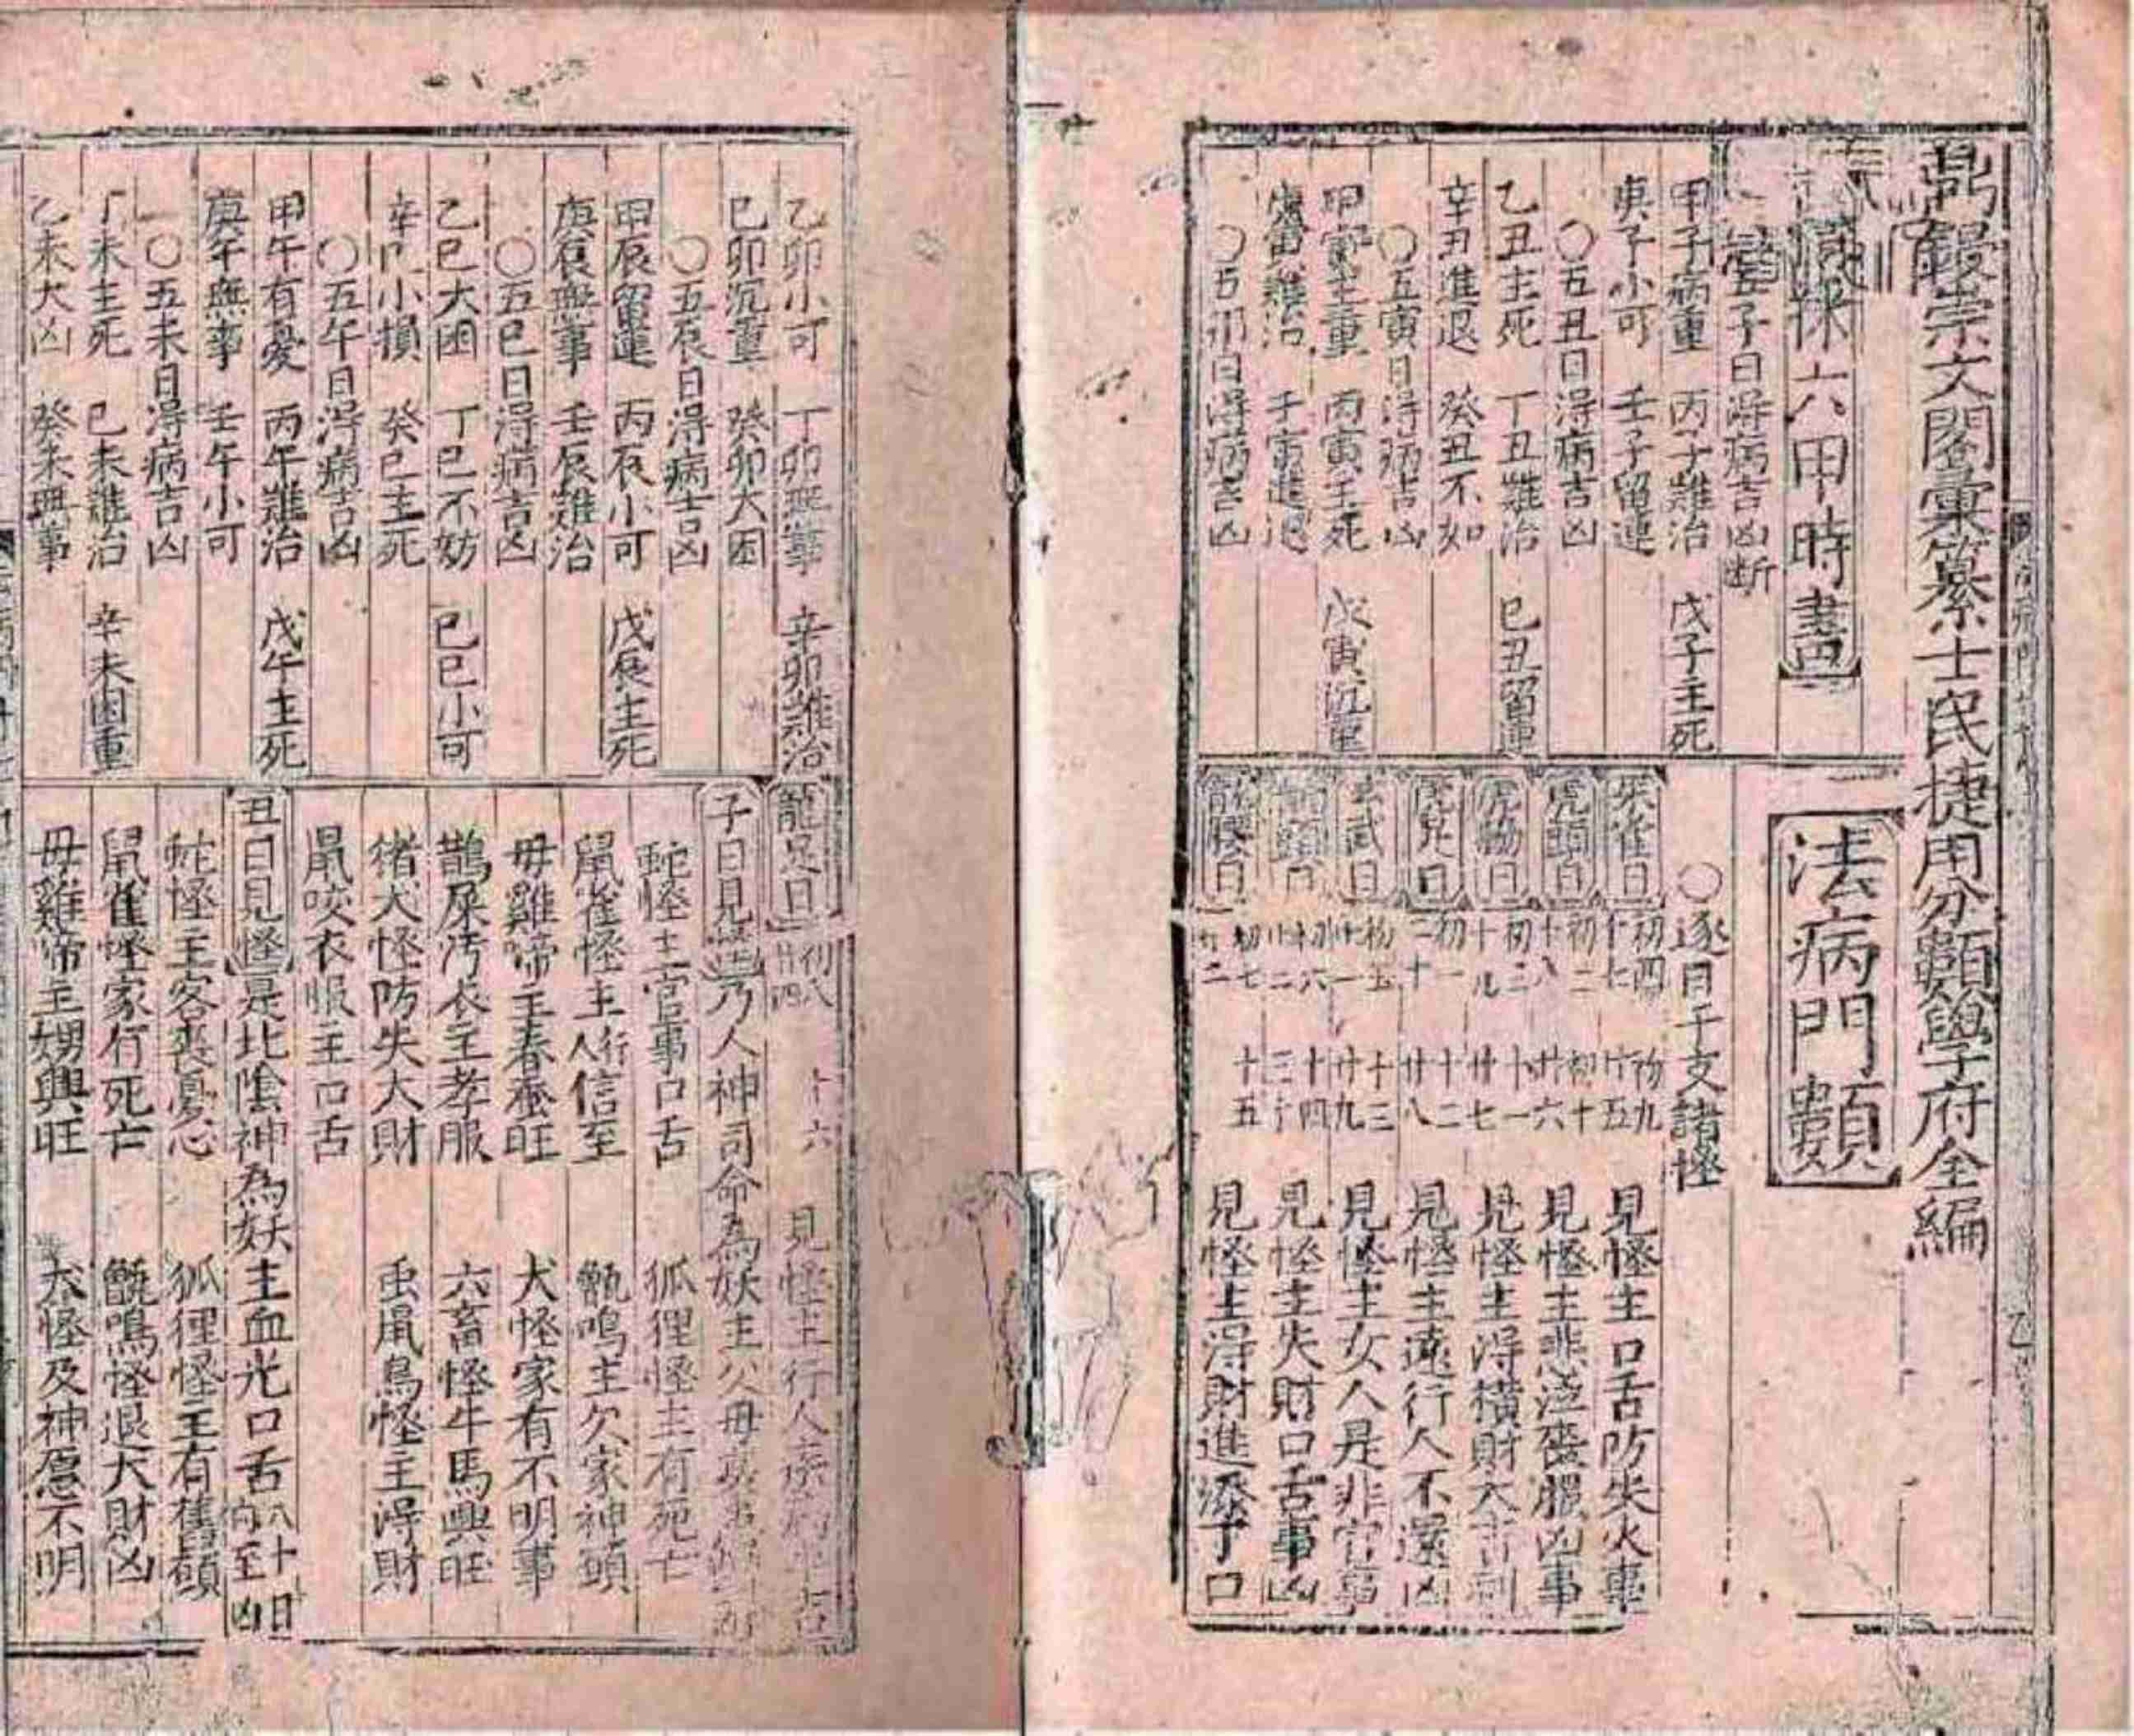 鼎鋟崇文閣彙纂士民捷用分類學府全編
六甲時書
法病門類
五子日得病吉凶断
甲子病重 丙子難治 戊子主死
庚子小可 壬子留連
〇五丑日得病吉凶
乙丑主死 丁丑難治 己丑留連
辛丑進退 癸丑不如
〇五寅日得病吉凶
甲寅主重 丙寅主死 戊寅沉重
庚寅難治 壬寅進退
〇五卯日得病吉凶
〇逐日干支諸怪
朱雀日 初四 初九 十七 廿五 見怪主口舌防失火事
虎頭日 初二 初十 十八 廿六 見怪主悲泣喪服凶事
虎脇日 初三 十一 十九 廿七 見怪主得橫財大吉利
虎足日 初一 十二 二十 廿八 見怪主遠行人不還凶
玄武日 初五 十三 廿一 廿九 見怪主女人是非官事
龍頭日 初六 十四 廿二 三十 見怪主失財口舌事凶
龍脇日 初七 十五 廿三 見怪主得財進添子口
乙卯小可 丁卯無事 辛卯難治
己卯沉重 癸卯大困
〇五辰日得病吉凶
甲辰留連 丙辰小可 戊辰主死
庚辰無事 壬辰難治
〇五巳日得病吉凶
乙巳大困 丁巳不妨 己巳小可
辛巳小損 癸巳主死
〇五午日得病吉凶
甲午有憂 丙午難治 戊午主死
庚午無事 壬午小可
〇五未日得病吉凶
丁未主死 己未難治 辛未困重
乙未大凶 癸未無事
龍足日 初八 十六 廿四 見怪主行人
子日見怪乃人神司命為妖主父母
蛇怪主官事口舌 狐狸怪主有死亡
鼠雀怪主人行信至 甑鳴主欠家神頭
毋雞啼主春蚕旺 犬怪家有不明事
鵲屎汚衣主孝服 六畜怪牛馬興旺
猪犬怪防失大財 虫鼠鳥怪主得財
鼠咬衣服主口舌
丑日見怪是北陰神為妖主血光口舌八十日内至凶
蛇怪主客喪憂心 狐狸怪主有舊願
鼠雀怪家有死亡 甑鳴怪退大財凶
毋雞啼主甥興旺 犬怪及神愿不明